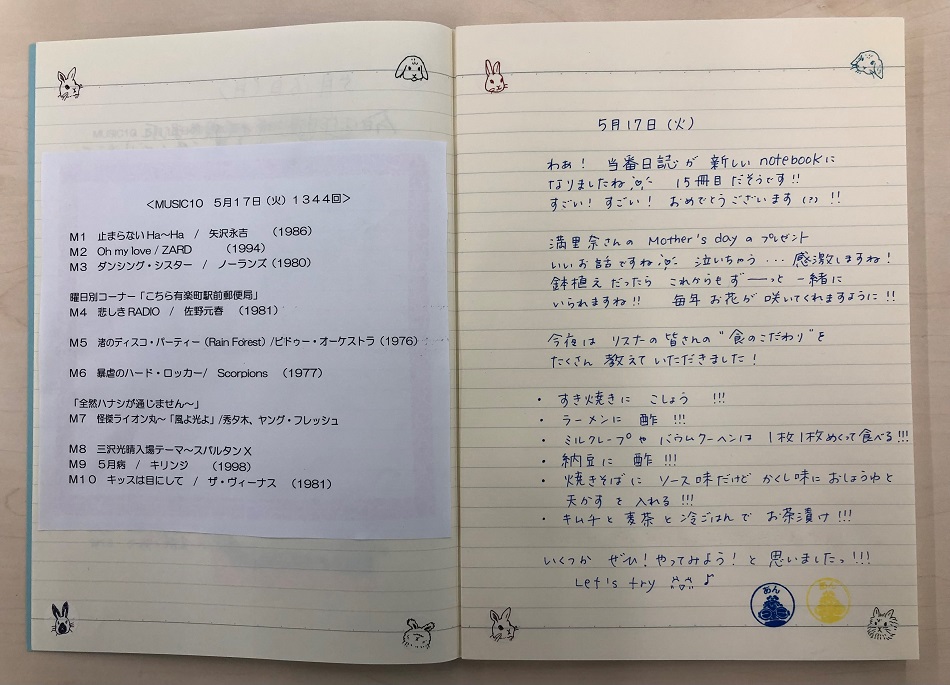 ＜MUSIC10　5月17日（火）1344回＞
M1　止まらないHa～Ha　/　矢沢永吉　（1986）
M2　Oh my love / ZARD　（1994）
M3　ダンシング・シスター　/　ノーランズ（1980）
曜日別コーナー「こちら有楽町駅前郵便局」
M4　悲しきRADIO　/　佐野元春　（1981）
M5　渚のディスコ・パーティー（Rain Forest）/ビドゥー・オーケストラ（1976）
M6　暴虐のハード・ロッカー/　Scorpions　（1977）
「全然ハナシが通じません～」
M7　怪傑ライオン丸～「風よ光よ」/秀夕木、ヤング・フレッシュ
M8　三沢光晴入場テーマ～スパルタンX
M9　5月病　/　キリンジ　（1998）
M10　キッスは目にして　/　ザ・ヴィーナス　（1981）
5月17日（火）
わぁ！ 当番日誌が 新しい notebookに
なりましたね 15冊目だそうです!!
すごい！すごい！ おめでとうございます(?) !!
満里奈さんの Mother's dayの プレゼント
いいお話ですね 泣いちゃう… 感激しますね！
鉢植えだったら これからも ずーーっと 一緒に
いられますね!! 毎年 お花が 咲いてくれますように!!
今夜は リスナの皆さんの "食のこだわり"を
たくさん 教えていただきました！
・ すき焼きに こしょう !!!
・ ラーメンに 酢 !!!
・ ミルクレープや バウムクーヘンは 1枚1枚めくって食べる!!!
・ 納豆に 酢 !!!
・ 焼きそばに ソース味だけど かくし味に おしょうゆと
天かすを 入れる!!!
・ キムチと 麦茶と 冷ごはんで お茶漬け!!!
いくつか ぜひ！やってみよう！と 思いましたっ!!!
Let's try ♪
あん
あん